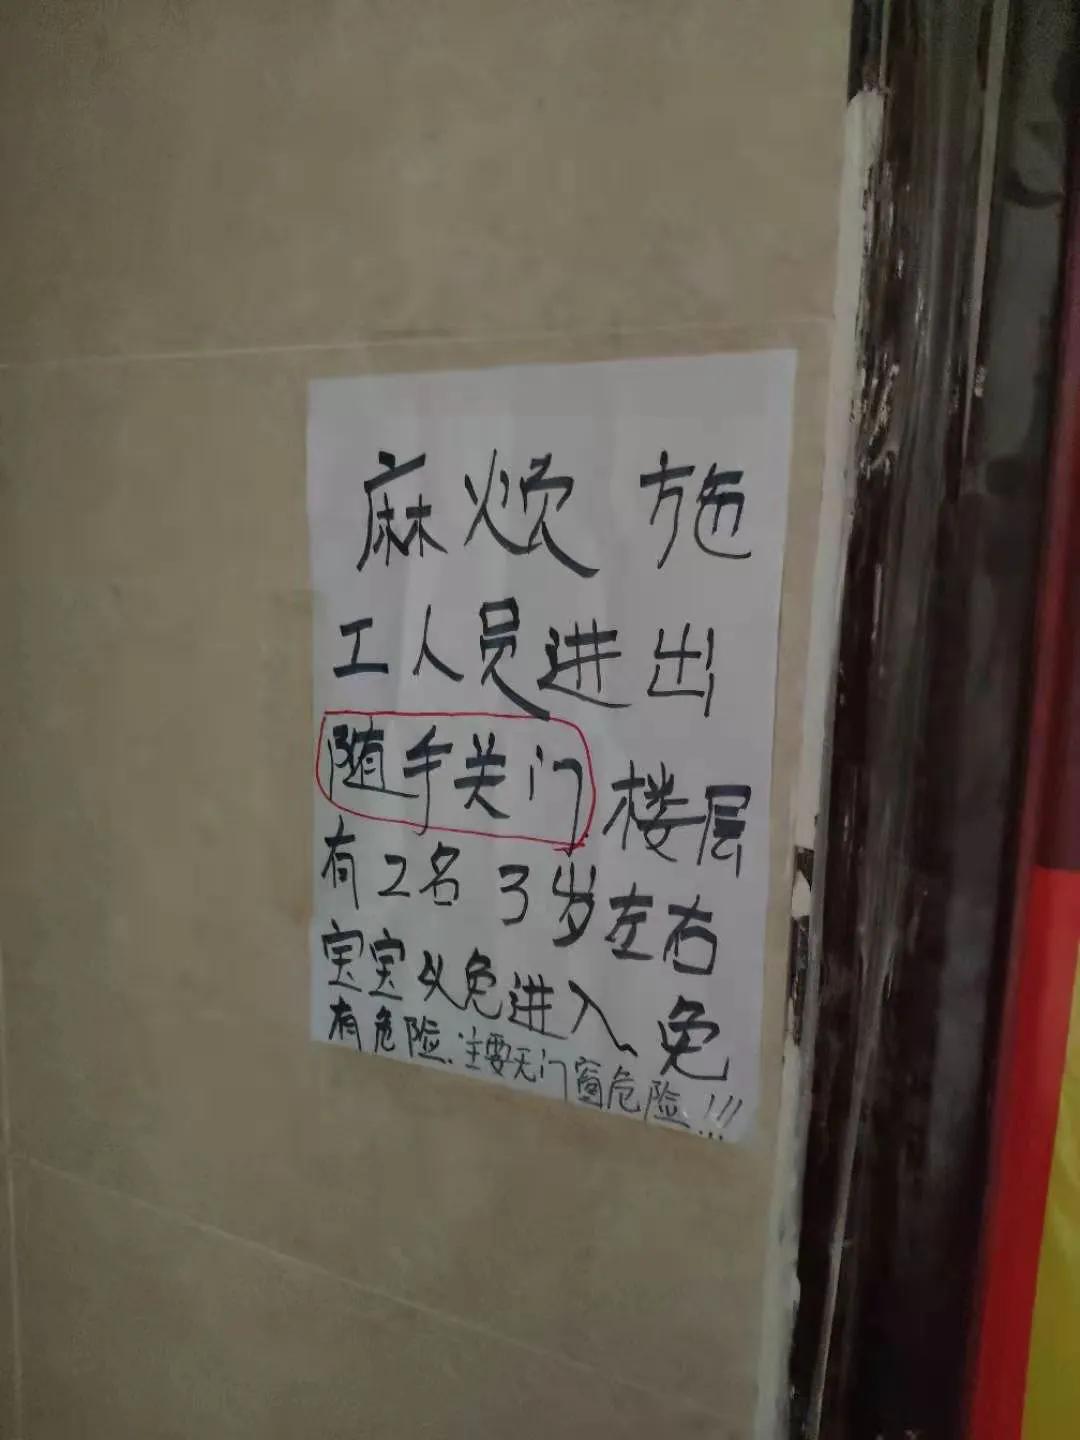 麻烦施
工人员进出
随手关门楼层
有2名3岁左右
宝宝以免进入免
有危险.主要无门窗危险!!!